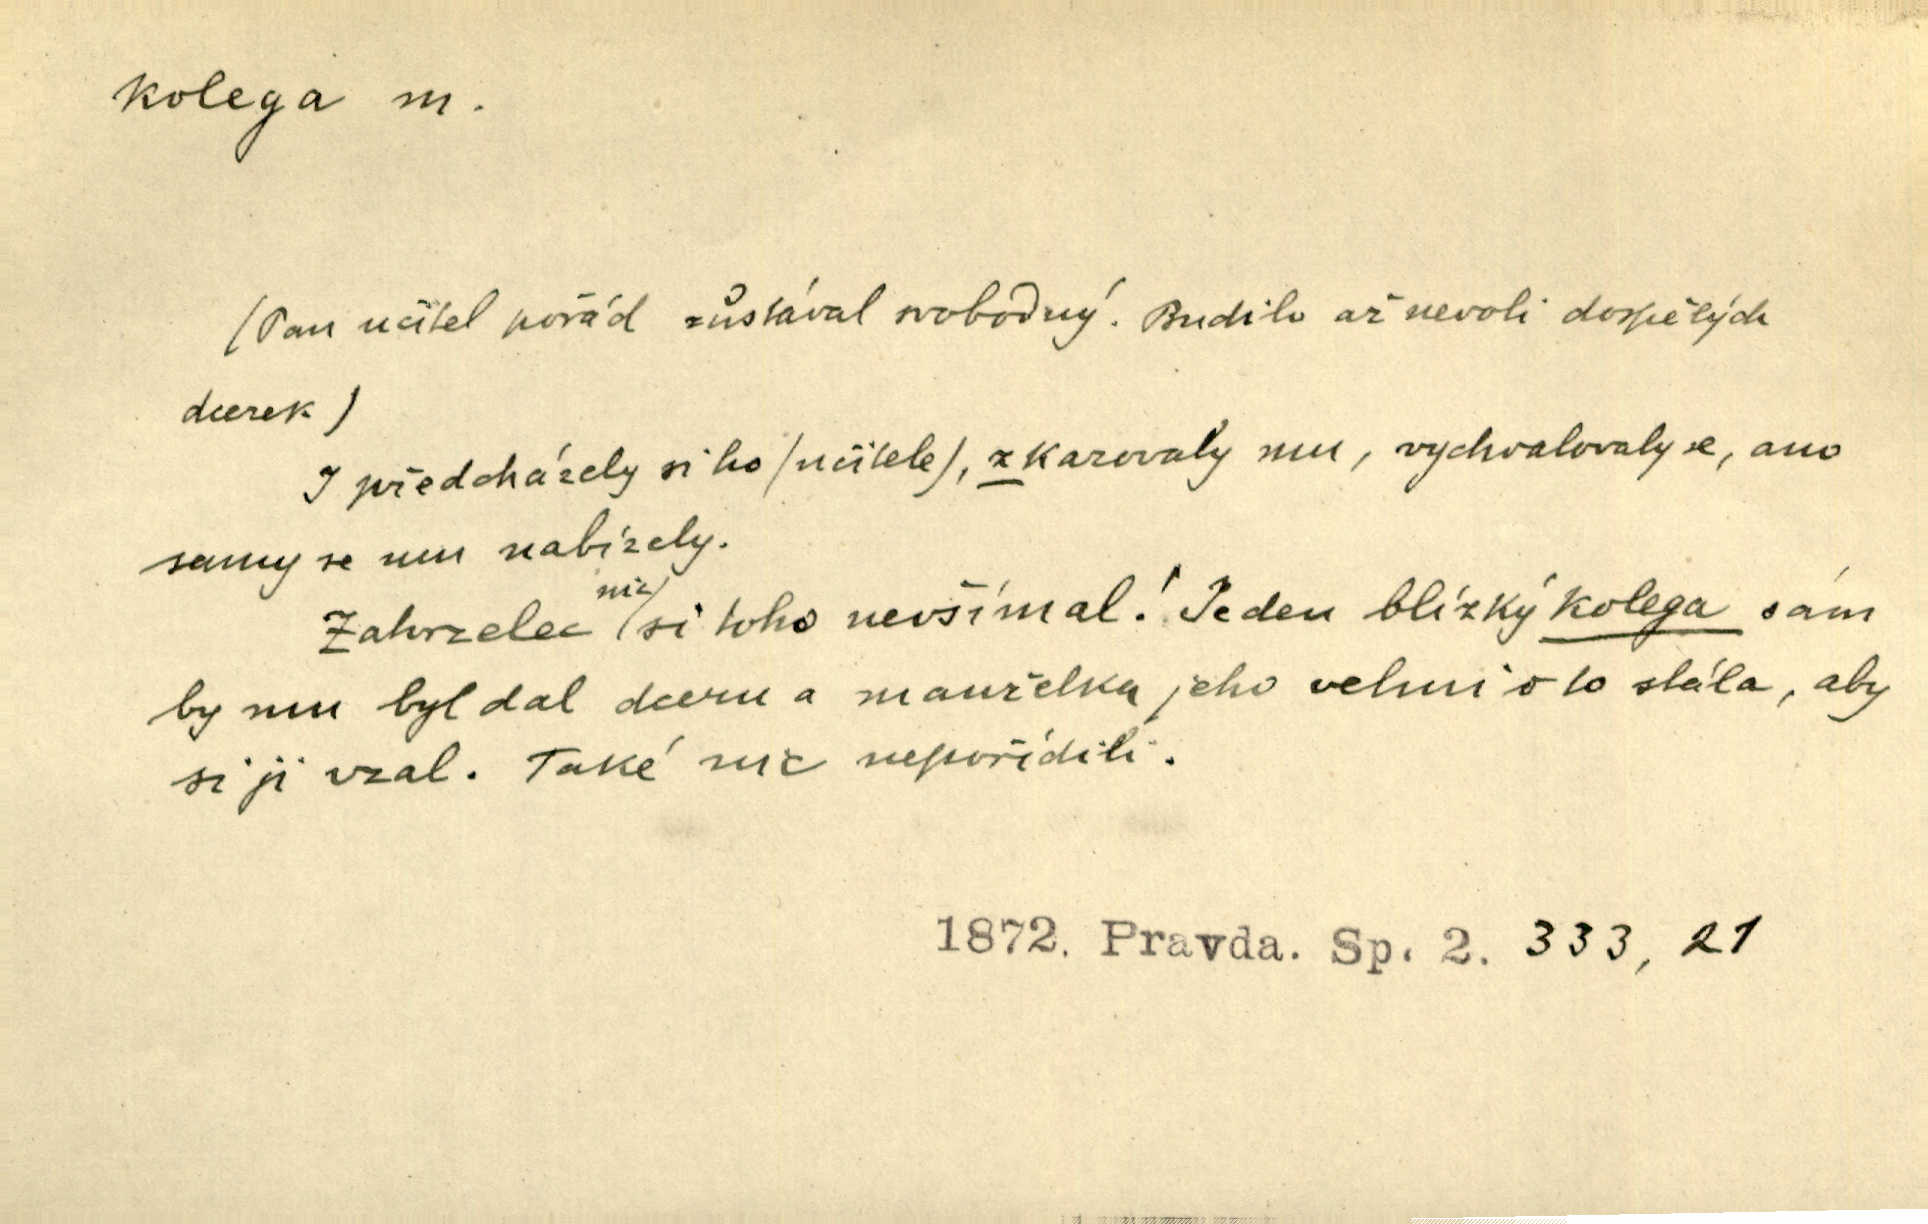 kolega m.
(Pan učitel pořád zůstával svobodný. Budilo až nevoli dospělých
dcerek)
I předcházely si ho (učitele), zkazovaly mu, vychvalovaly se, ano
samy se mu nabízely.
Zahrzelec nic si toho nevšímal! Jeden blízký kolega sám
by mu byl dal dceru a manželka jeho velmi o to stála, aby
si ji vzal. Také nic nepořídili.
1872. Pravda. Sp. 2. 333, 21